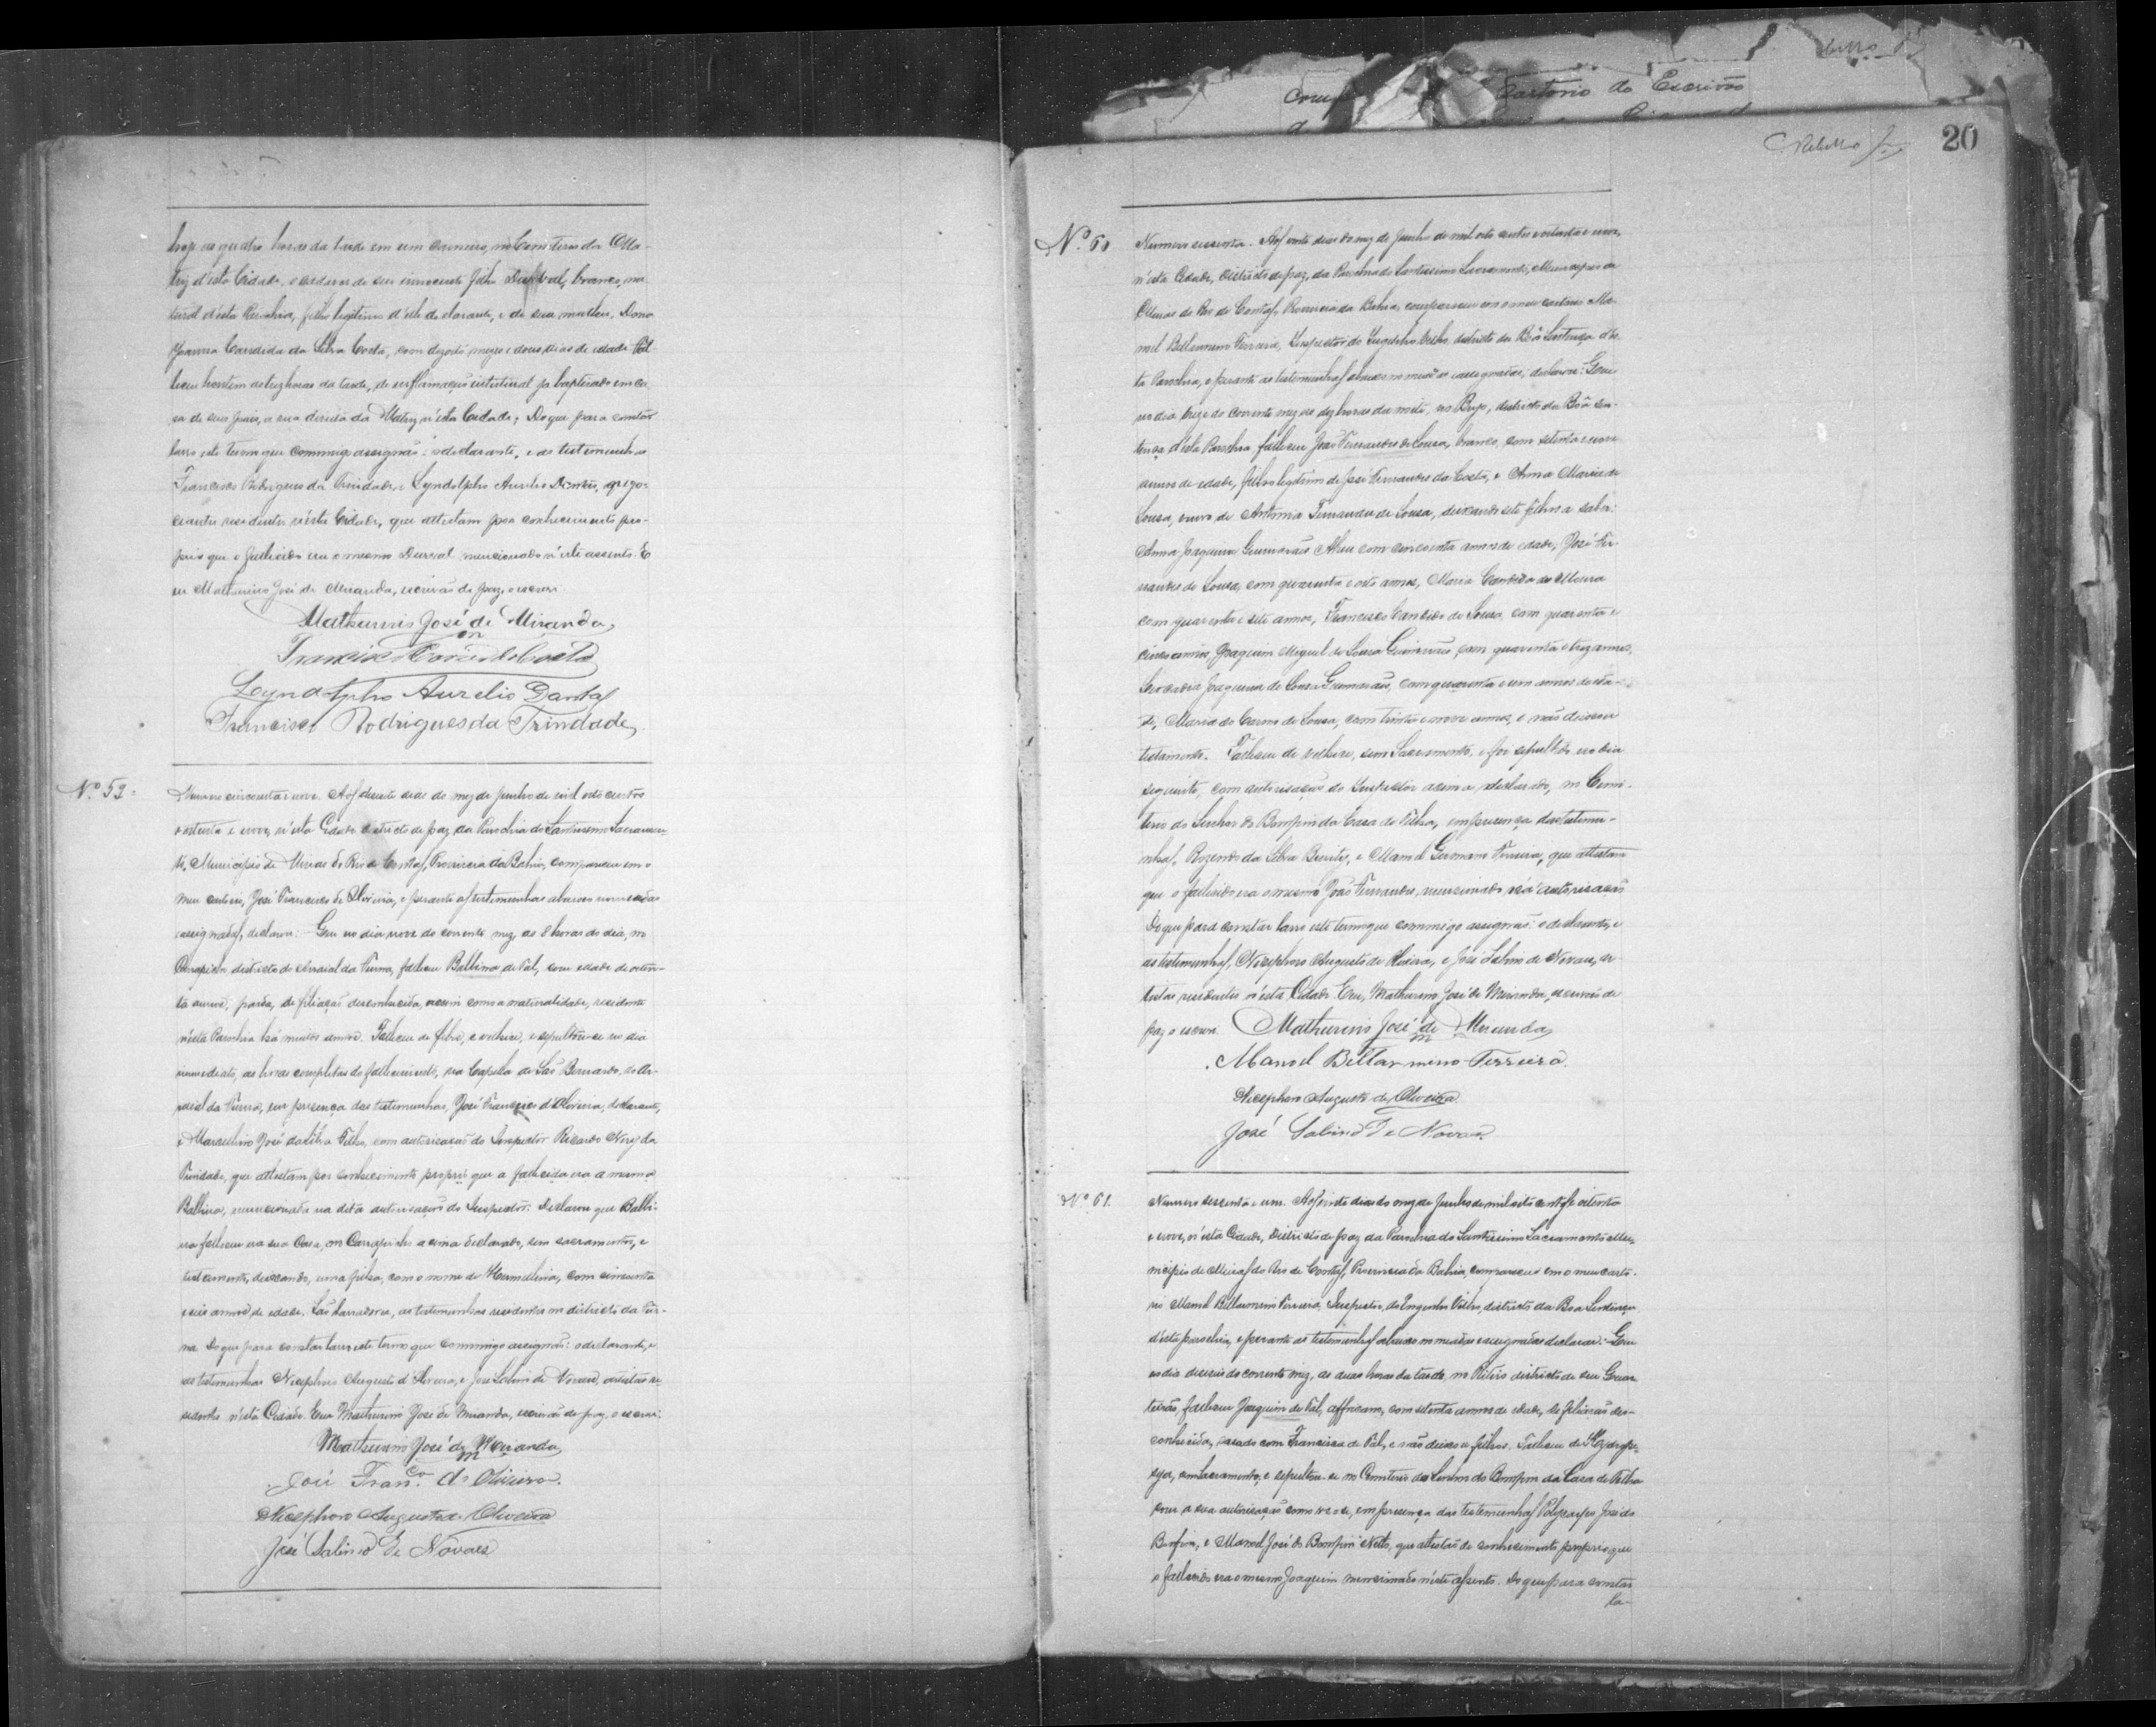 Cartorio do Escrivão
20
hoje as quatro horas da tarde em um carneiro, no Cemiterio da Ma-
triz d'esta Cidade, o cadaver de seu innocente filho Durval, branco, na-
tural d'esta Parochia, filho legitimo d'elle declarante, e de sua mulher, Dona
Joanna Candida da Silva Costa, com dezoito mezes e dous dias de idade Fal-
leceu hontem as trez horas da tarde, de inflamação intestinal ja baptisado em ca-
sa de seus pais, a rua direita da Matriz n'esta Cidade; Do que para constar
lavro este termo que commigo assignão: o declarante, e as testemunhas
Francisco Rodrigues da Trindade, e Lyndolpho Aurelio Dantas, nego-
ciantes residentes n'esta Cidade, que attestam por conhecimento pro-
prio que o fallecido era o mesmo Durval mencionado n'este assento. E
eu Mathurino José de Miranda, escrivão de paz, o escrevi.
Mathurino José de Miranda
Lyndolpho Aurelio Dantas
Francisco Rodrigues da Trindade
Nº 59
Numero cincoenta e nove. Aos dias do mez de Junho de mil oito centos
oitenta e nove, n'esta Cidade districto de paz da Parochia do Santissimo Sacramen-
to, Municipio de Minas do Rio de Contas, Provincia da Bahia, compareceu em o
meu cartorio, José Francisco de Oliveira, e perante as testemunhas abaixo nomeadas
e assignadas, declarou: Que no dia nove do corrente mez, as 8 horas do dia, no
districto do Arraial da Furna, falleceu Balbina de Tal, com idade de oiten-
ta annos, parda, de filiação desconhecida, assim como a naturalidade, residente
n'esta Parochia ha muitos annos. Falleceu de febre, e velhice, e sepultou-se no dia
immediato, as horas completas do fallecimento, na Capella de São Bernardo, do Ar-
raial da Furna, em presença das testemunhas, José Francisco d'Oliveira, declarante,
e Marcolino José da Silva Filho, com autorisação do Inspector Ricardo da
Trindade, que attestam por conhecimento proprio que a fallecida era a mesma
Balbina, mencionada na dita autorisação do Inspector. Declarou que Balbi-
na falleceu na sua Casa, acima declarado, sem sacramentos, e
testamento, deixando, uma filha, com o nome de com cincoenta
e seis annos de idade. São lavradores, as testemunhas residentes no districto da Fur-
na. Do que para constar lavro este termo que commigo assignão: o declarante, e
as testemunhas Nicephoro Augusto d'Oliveira, e José Sabino de Novaes, artistas re-
sidentes n'esta Cidade. Eu Mathurino José de Miranda, escrivão de paz, o escrevi.
Mathurino José de Miranda
José Fran.co de Oliveira.
Nicephoro Augusto de Oliveira
José Sabino de Novaes
Nº 60
Numero sessenta. Aos vinte dias do mez de Junho de mil oito centos oitenta e nove,
n'esta Cidade, districto de paz, da Parochia do Santissimo Sacramento, Municipio de
Minas do Rio de Contas, Provincia da Bahia, compareceu em o meu cartorio Ma-
noel Bellarmino Ferreira, Inspector do Engenho Velho, districto da Bôa Sentença d'es-
ta Parochia, e perante as testemunhas abaixo nomeadas e assignadas, declarou: Que
no dia treze do corrente mez as dez horas da noite, no Brejo, districto da Bôa Sen-
tença d'esta Parochia falleceu João Fernandes de Sousa, branco, com setenta e nove
annos de idade, filho legitimo de José Fernandes da Costa, e Anna Maria de
Sousa, viuvo de Antonia Fernandes de Sousa, deixando sete filhos a saber:
Anna Joaquina Guimarães com cincoenta annos de idade, José Fer-
nandes de Sousa, com quarenta e oito annos, Maria Candida de Moura
com quarenta e sete annos, Francisco Candido de Sousa, com quarenta e
cinco annos, Joaquim Miguel de Sousa Guimarães, com quarenta e trez annos,
Leocadia Joaquina de Sousa Guimarães, com quarenta e um annos de ida-
de, Maria do Carmo de Sousa, com trinta e nove annos, e não deixou
testamento. Falleceu de velhice, sem Sacramento, e foi sepultado no dia
seguinte, com autorisação do Inspector acima declarado, no Cemi-
terio do Senhor do Bomfim da Casa de Telha, em presença das testemu-
nhas, Rozendo da Silva e Manoel Germano Ferreira, que attestam
que o fallecido era o mesmo João Fernandes, mencionado n'esta autorisação
Do que para constar lavro este termo que commigo assignão: o declarante, e
as testemunhas, Nicephoro Augusto de Oliveira, e José Sabino de Novaes, ar-
tistas residentes n'esta Cidade. Eu, Mathurino José de Miranda, escrivão de
paz o escrevi. Mathurino José de Miranda
Manoel Bellarmino Ferreira.
Nicephoro Augusto de Oliveira
José Sabino de Novaes
Nº 61.
Numero sessenta e um. Aos vinte dias do mez de Junho de mil oito centos e oitenta
e nove, n'esta Cidade, Districto de paz da Parochia do Santissimo Sacramento Mu-
nicipio de Minas do Rio de Contas, Provincia da Bahia, compareceu em o meu carto-
rio Manoel Bellarmino Ferreira, Inspector, do Engenho Velho, districto da Boa Sentença
d'esta parochia, e perante as testemunhas abaixo nomeadas e assignadas declarou: Que
no dia deseseis do corrente mez, as duas horas da tarde, no Retiro districto de seu Quar-
teirão, falleceu Joaquim de Tal, affricano, com setenta annos de idade, de filiação des-
conhecida, casado com Francisca de Tal, e não deixou filhos. Falleceu de Hydrope-
sia, sem Sacramento, e sepultou-se no Cemiterio do Senhor do Bomfim da Casa de Telha
com a sua autorisação como se vê, em presença das testemunhas José do
Bomfim, e Manoel José do Bomfim Netto, que attestão de conhecimento proprio que
o fallecido era o mesmo Joaquim mencionado n'este assento. Do que para constar
la-